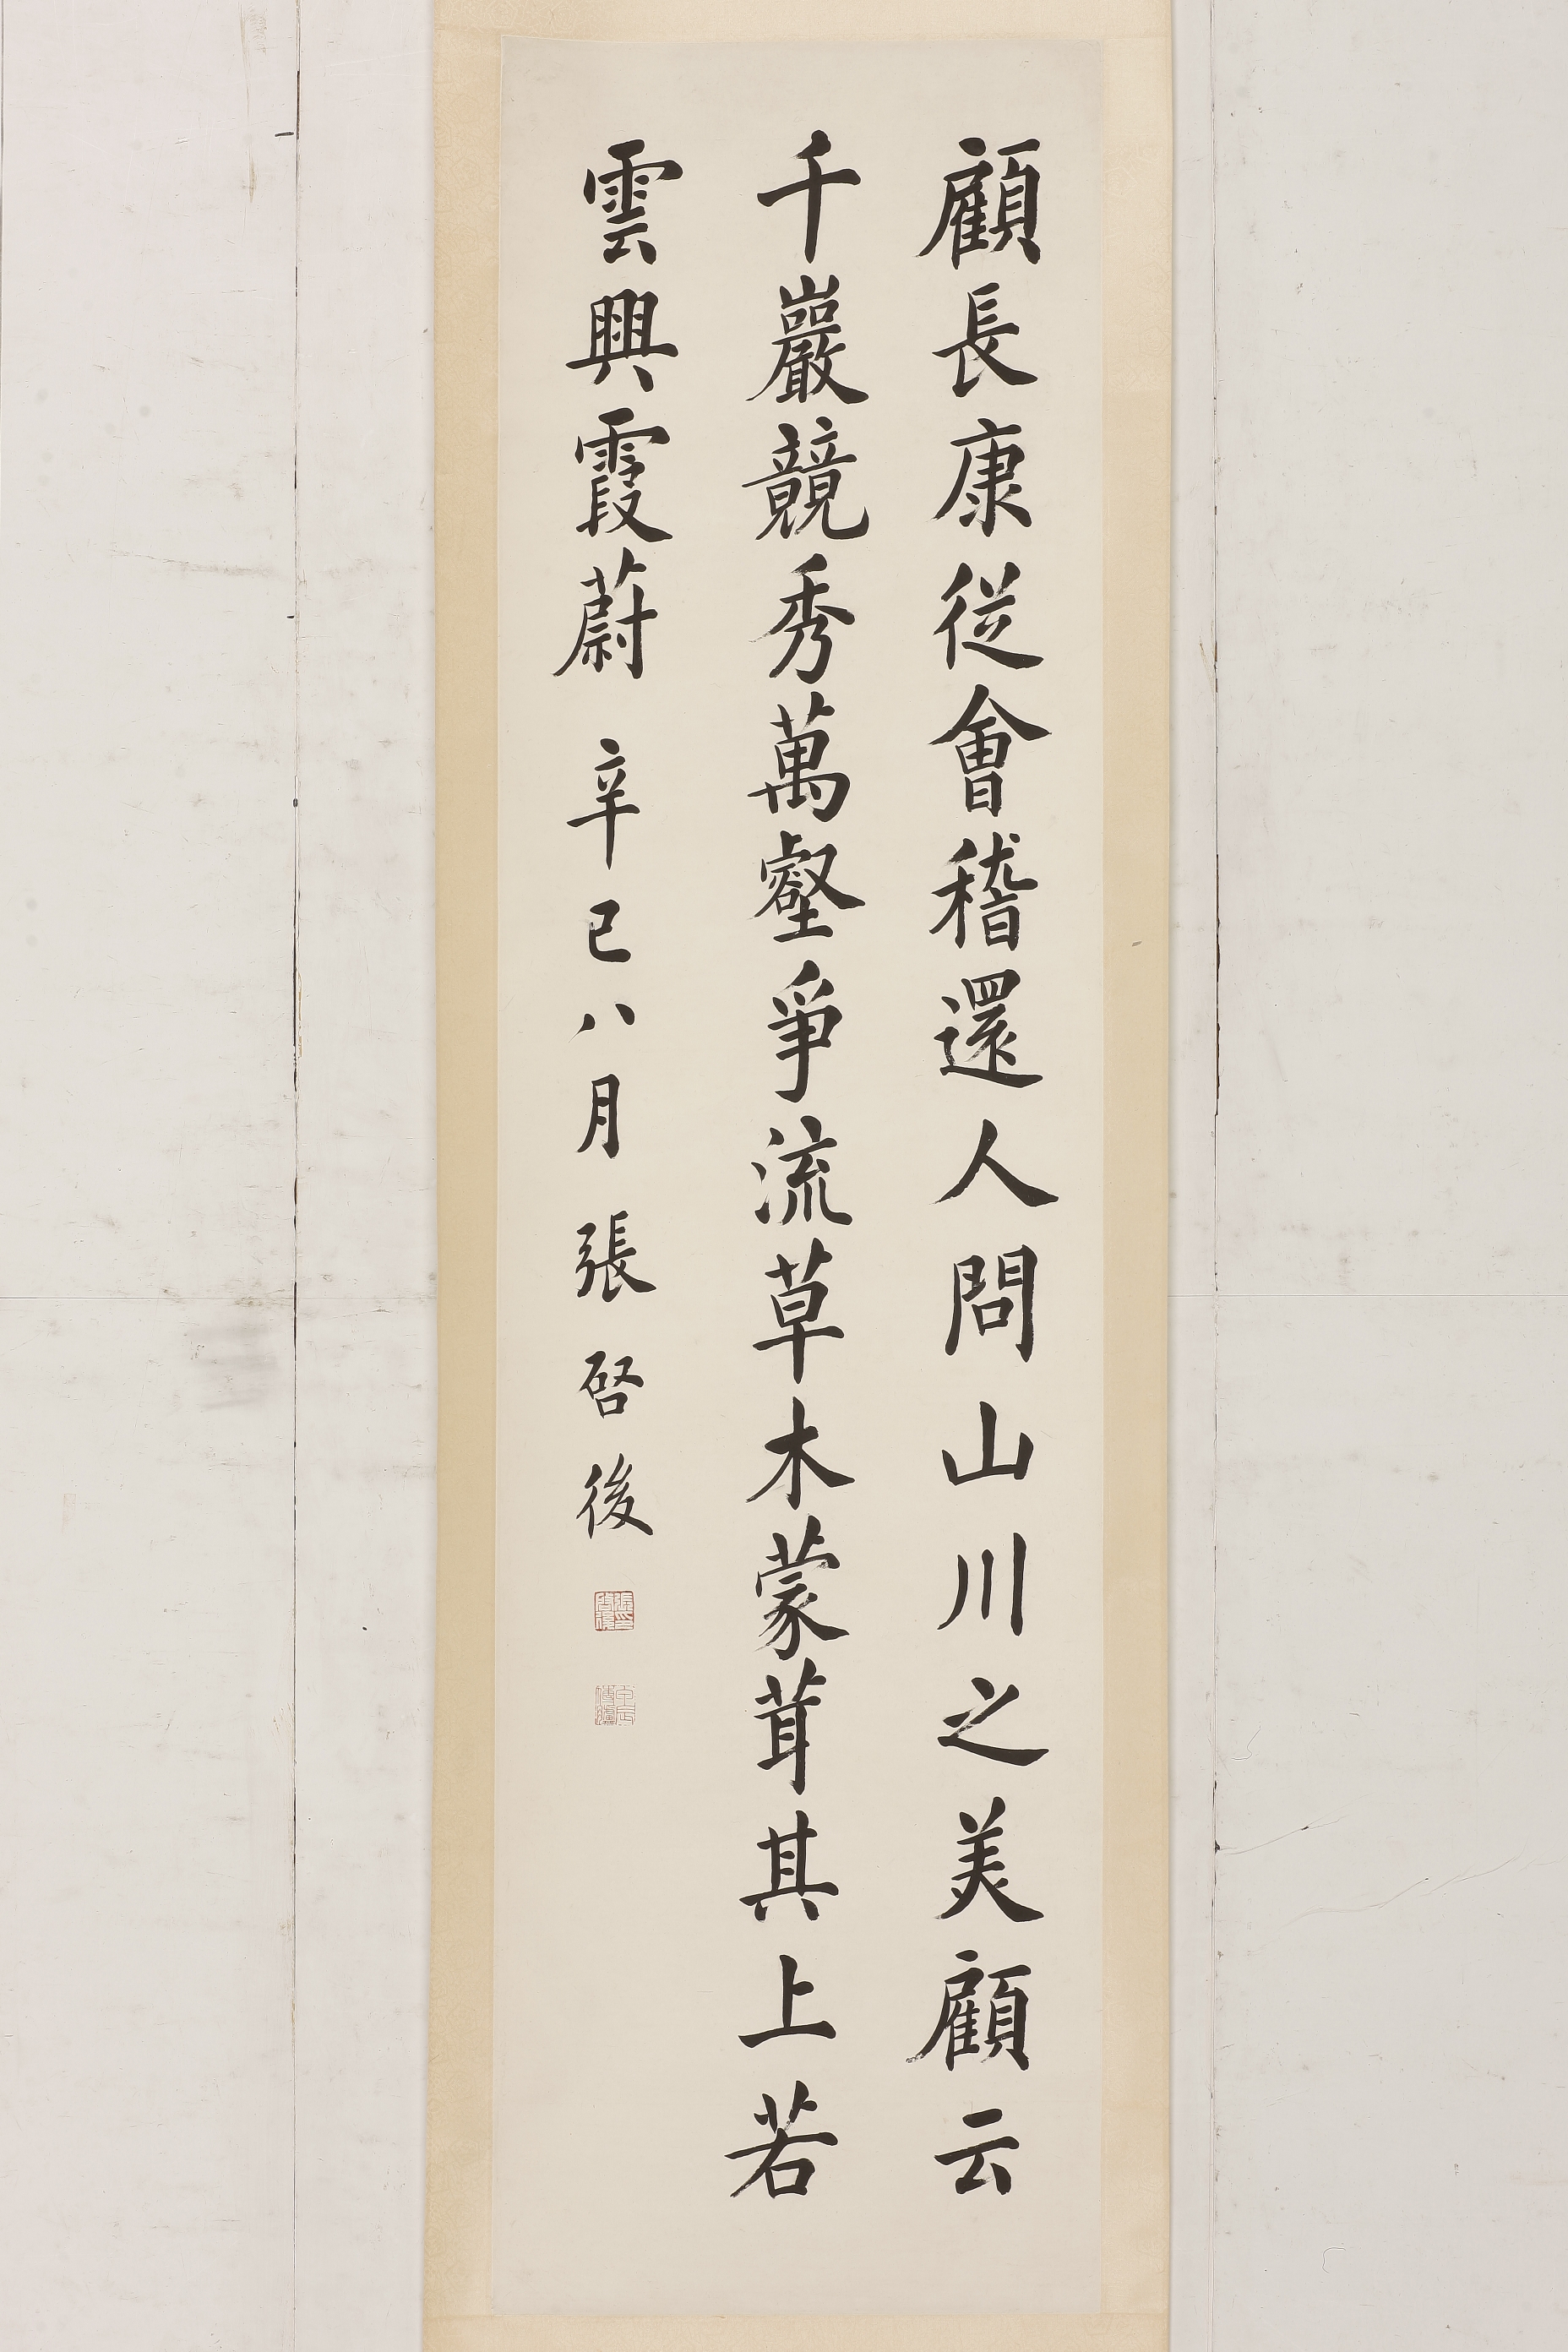 顧長康從會稽還人問山川之美顧云
千巖競秀萬壑爭流草木蒙茸其上若
雲興霞蔚 辛巳八月 張啓後